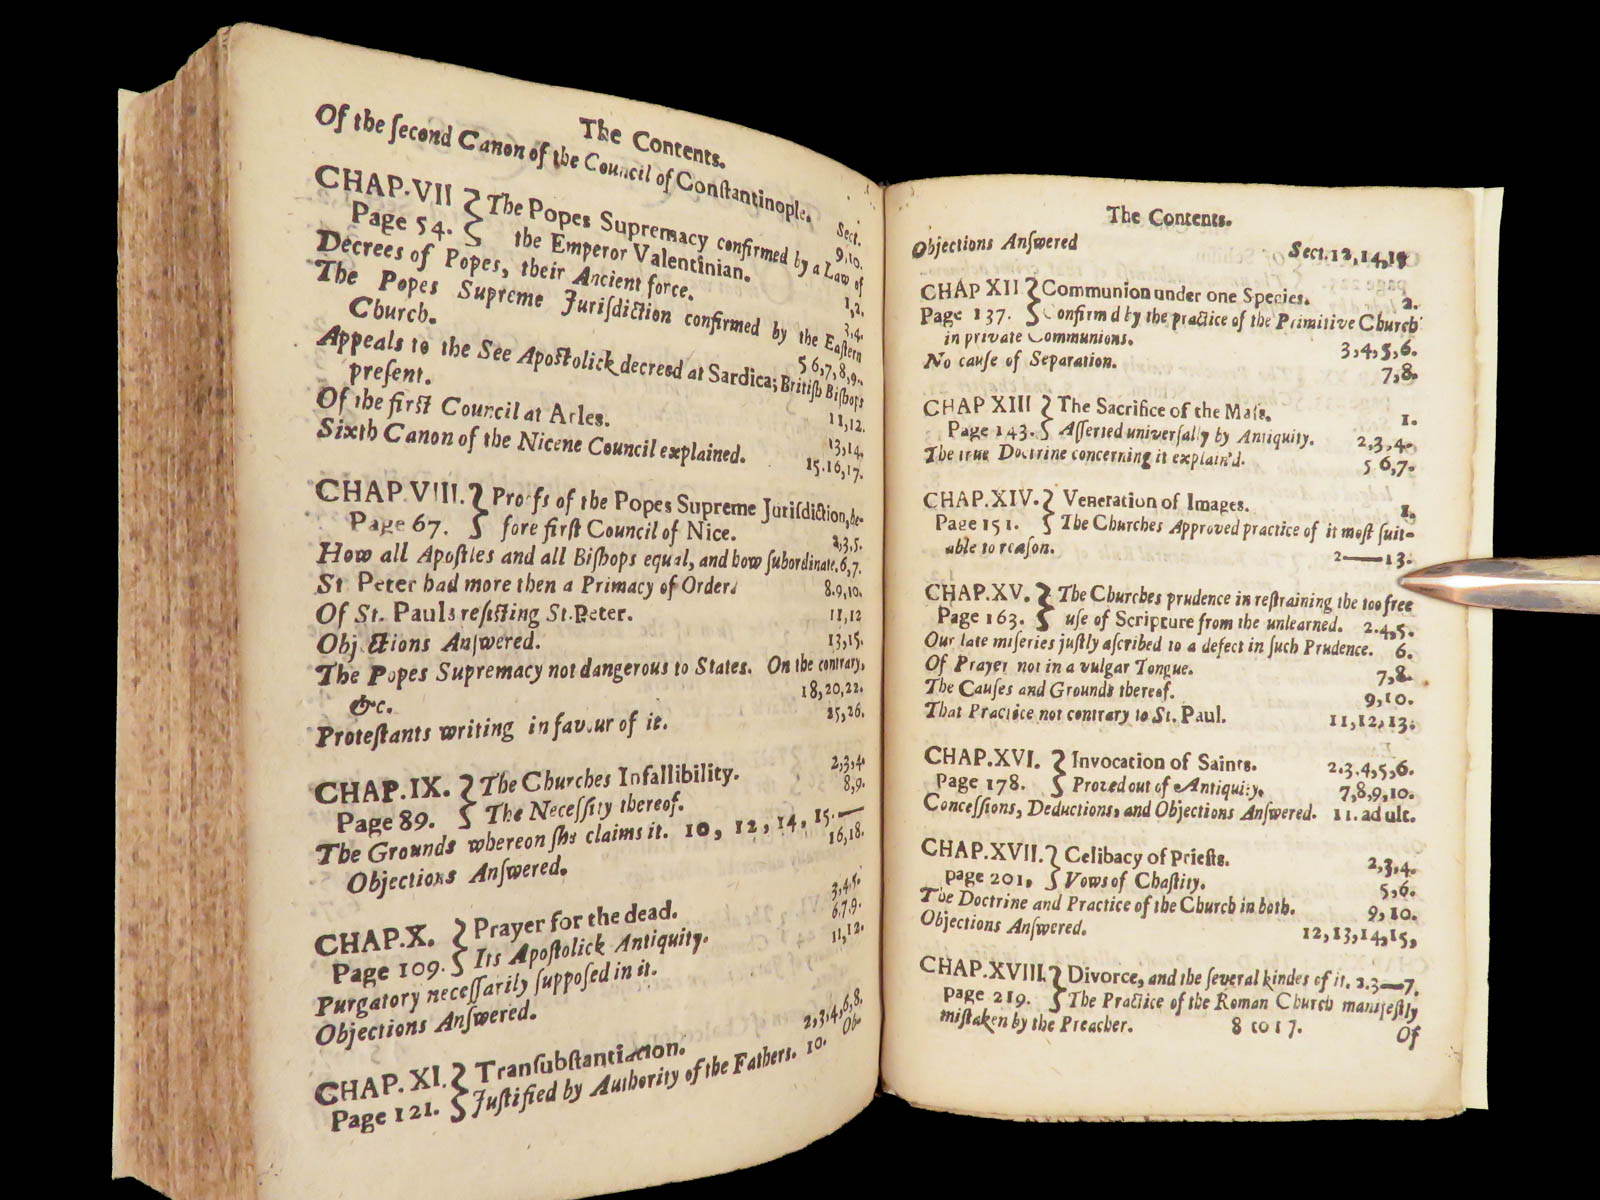 The Contents.
Of the ſecond Canon of the Council of Conſtantinople. Sect.
9,10.
CHAP. VII } The Popes Supremacy confirmed by a Law of
Page 54. } the Emperor Valentinian. 1,2.
Decrees of Popes, their Ancient force. 3,4.
The Popes Supreme Juriſdiction confirmed by the Eaſtern
Church. 5 6,7,8,9.
Appeals to the See Apoſtolick decreed at Sardica; Britiſh Biſhops
preſent. 11,12.
Of the firſt Council at Arles. 13,14.
Sixth Canon of the Nicene Council explained. 15.16,17.
CHAP. VIII. } Proofs of the Popes Supreme Juriſdiction, be-
Page 67. } fore firſt Council of Nice. 2,3,5.
How all Apoſtles and all Biſhops equal, and how ſubordinate. 6,7.
St Peter had more then a Primacy of Order. 8.9,10.
Of St. Pauls reſiſting St. Peter. 11,12
Obj ctions Anſwered. 13,15.
The Popes Supremacy not dangerous to States. On the contrary,
&c. 18,20,22.
Proteſtants writing in favour of it. 25,26.
CHAP. IX. } The Churches Infallibility. 2,3,4.
Page 89. } The Neceſſity thereof. 8,9.
The Grounds whereon ſhe claims it. 10, 12, 14, 15.—
Objections Anſwered. 16,18.
CHAP. X. } Prayer for the dead. 3,4,5.
Page 109. } Its Apoſtolick Antiquity. 6.7.9.
Purgatory neceſſarily ſuppoſed in it. 11,12.
Objections Anſwered.
CHAP. XI. } Tranſubſtantiation. 2,3,4,6,8.
Page 121. } Juſtified by Authority of the Fathers. 10. Ob-
The Contents.
Objections Anſwered Sect. 12,14,19
CHAP XII } Communion under one Species. 2.
Page 137. } Confirm d by the practice of the Primitive Church
in private Communions. 3,4,5,6.
No cauſe of Separation. 7,8.
CHAP XIII } The Sacrifice of the Maſs. 1.
Page 143. } Aſſerted univerſally by Antiquity. 2,3,4.
The true Doctrine concerning it explain'd. 5 6,7.
CHAP. XIV. } Veneration of Images. 1.
Page 151. } The Churches Approved practice of it moſt ſuit-
able to reaſon. 2——13.
CHAP. XV. } The Churches prudence in reſtraining the too free
Page 163. } uſe of Scripture from the unlearned. 2.4,5.
Our late miſeries juſtly aſcribed to a defect in ſuch Prudence. 6.
Of Prayer not in a vulgar Tongue. 7,8.
The Cauſes and Grounds thereof. 9,10.
That Practice not contrary to St. Paul. 11,12,13.
CHAP. XVI. } Invocation of Saints. 2.3.4,5,6.
Page 178. } Proved out of Antiquity. 7,8,9,10.
Conceſſions, Deductions, and Objections Anſwered. 11. ad ult.
CHAP. XVII. } Celibacy of Prieſts. 2,3,4.
page 201, } Vows of Chaſtity. 5,6.
The Doctrine and Practice of the Church in both. 9,10.
Objections Anſwered. 12,13,14,15,
CHAP. XVIII. } Divorce, and the ſeveral kindes of it. 2.3—7.
page 219. } The Practice of the Roman Church manifeſtly
miſtaken by the Preacher. 8 to 17. Of